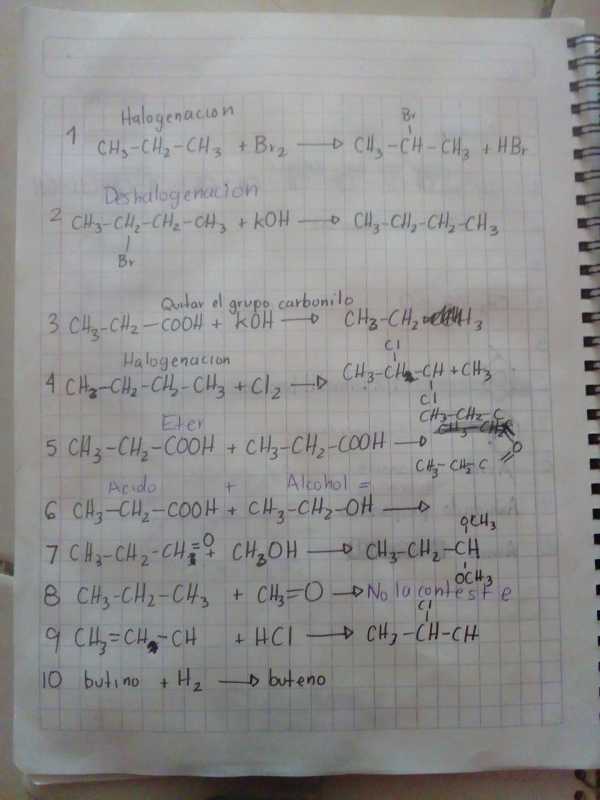 Halogenacion
Br
1 CH3-CH2-CH3 + Br2 → CH3-CH-CH3 + HBr
Deshalogenacion
2 CH3-CH2-CH2-CH3 + KOH → CH3-CH2-CH2-CH3
Br
Quitar el grupo carbonilo
3 CH3-CH2-COOH + KOH → CH3-CH2
Halogenacion
Cl
4 CH3-CH2-CH2-CH3 + Cl2 → CH3-CH-CH+CH3
Cl
Eter
CH3-CH2-C
5 CH3-CH2-COOH + CH3-CH2-COOH →
O
CH3-CH2C
Acido + Alcohol =
6 CH3-CH2-COOH + CH3-CH2-OH →
OCH3
7 CH3-CH2-CH=O + CH3OH → CH3-CH2-CH
OCH3
8 CH3-CH2-CH3 + CH3=O → No la conteste
Cl
9 CH3=CH-CH + HCl → CH3-CH-CH
10 butino + H2 → buteno